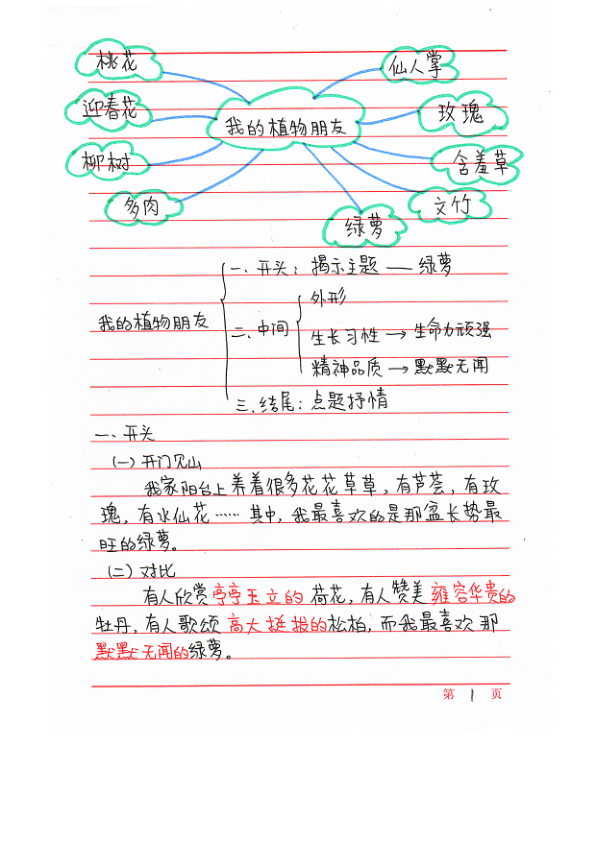 桃花
仙人掌
迎春花
我的植物朋友
玫瑰
柳树
含羞草
多肉
文竹
绿萝
一、开头：揭示主题——绿萝
外形
我的植物朋友
二、中间
生长习性→生命力顽强
精神品质→默默无闻
三、结尾：点题抒情
一、开头
（一）开门见山
我家阳台上养着很多花花草草，有芦荟，有玫
瑰，有水仙花……其中，我最喜欢的是那盆长势最
旺的绿萝。
（二）对比
有人欣赏亭亭玉立的荷花，有人赞美雍容华贵的
牡丹，有人歌颂高大挺拔的松柏，而我最喜欢那
默默无闻的绿萝。
第 1 页